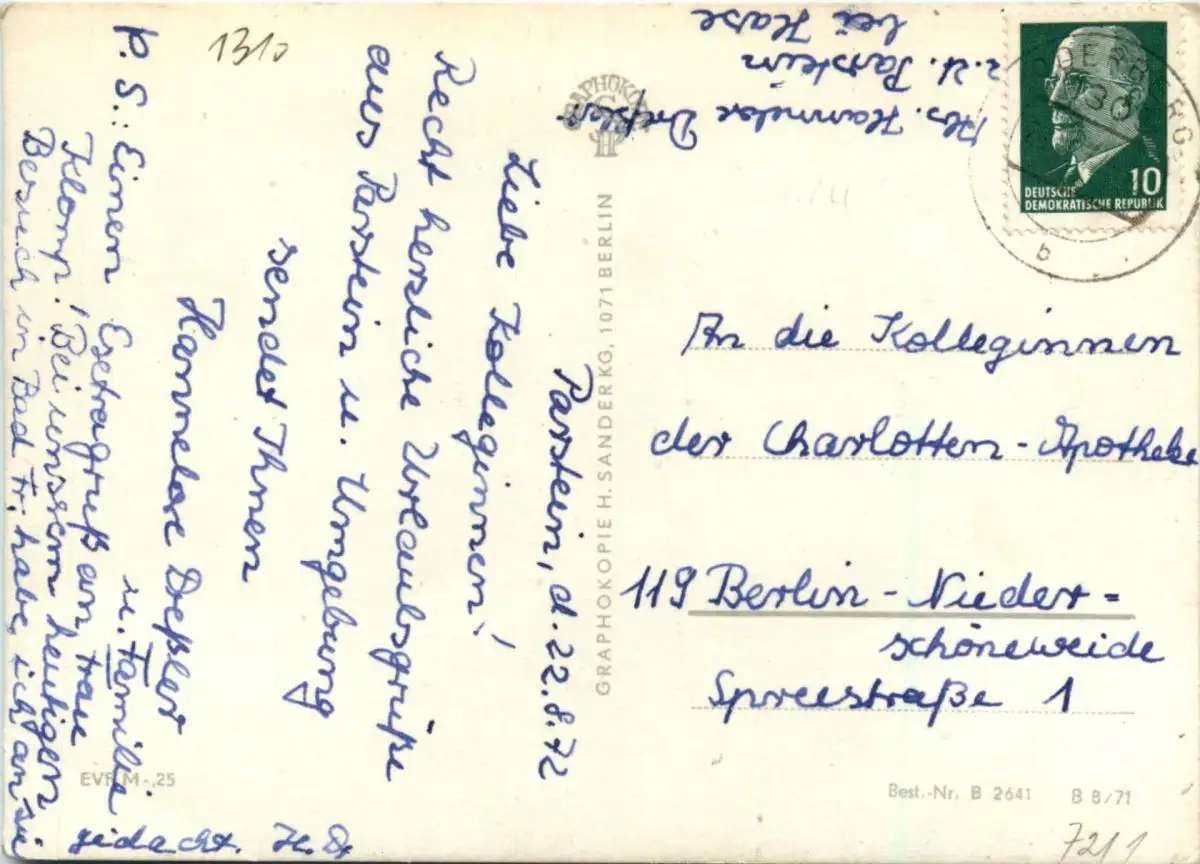 Parstein, d. 22.8.72
Liebe Kolleginnen!
Recht herzliche Urlaubsgrüße
aus Parstein u. Umgebung
sendet Ihnen
Hannelore Dreßler
u. Familie
P.S.: Einen Extragruß an Frau
Klomp! Bei unserem heutigen
Besuch in Bad Fr. habe ich an sie
gedacht. H. D.
1310
Abs. Hannelore Dreßler
z. Zt. Parstein
bei Hase
GRAPHOKOPIE
GRAPHOKOPIE H. SANDER KG, 1071 BERLIN
ODERBERG
b
10
DEUTSCHE
DEMOKRATISCHE REPUBLIK
An die Kolleginnen
der Charlotten-Apotheke
119 Berlin - Nieder=
schöneweide
Spreestraße 1
EVP M -,25
Best.-Nr. B 2641 B 8/71